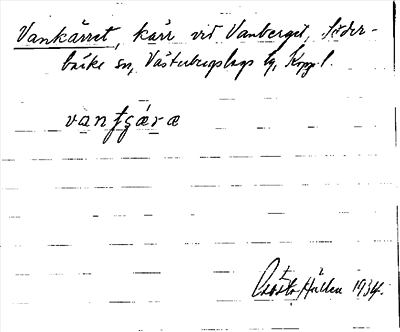 Vankärret, kärr vid Vanberget, Söder-
bärke sn, Västerbergslags tg, Kopp. l.
vanʃçǽræ
Hällen 1934.